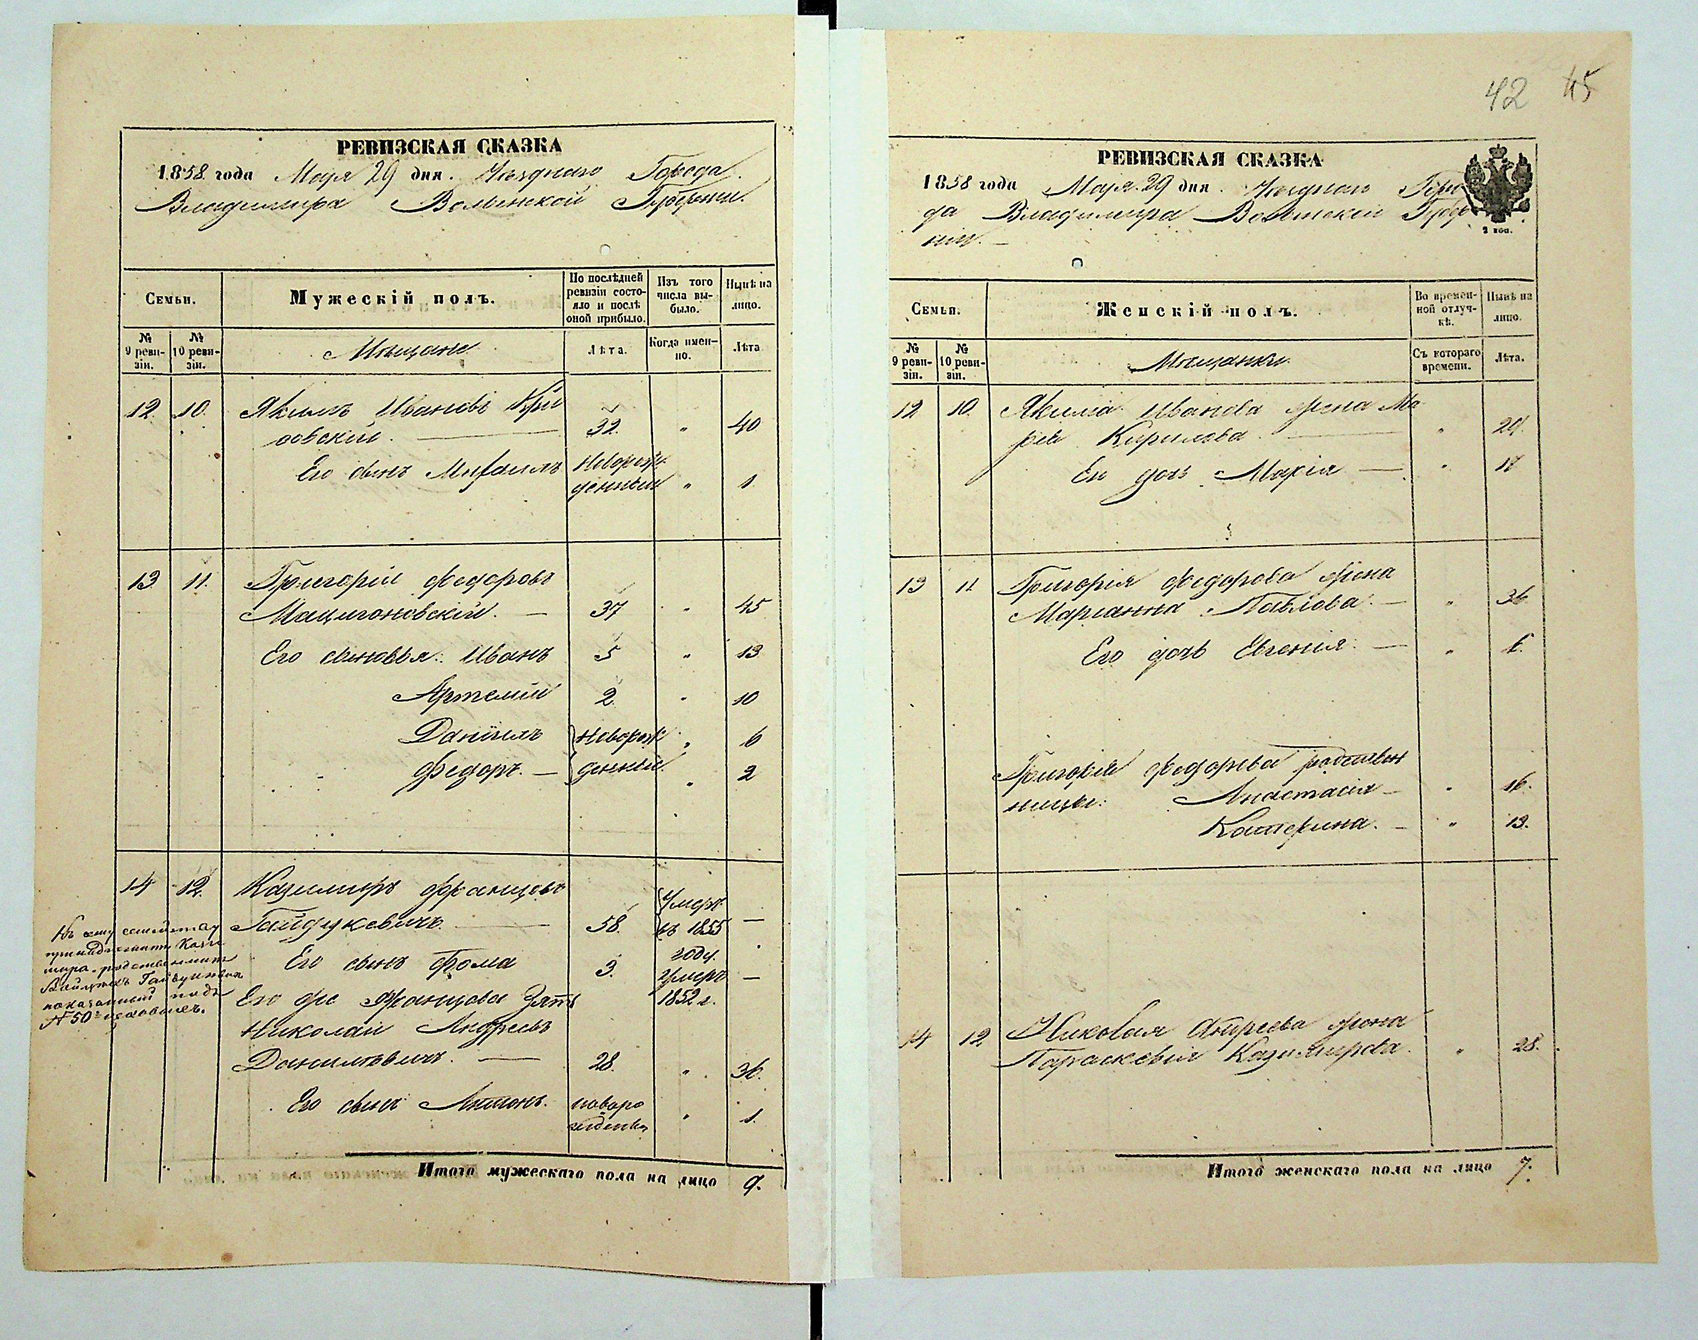 РЕВИЗСКАЯ СКАЗКА
1858 года Мая 29 дня. Уѣзднаго Города
Владимира Волынской Губерніи.
Семьи.
Мужескій полъ.
По послѣдней ревизіи состояло и послѣ оной прибыло.
Изъ того числа выбыло.
Нынѣ на лицо.
№ 9 ревизіи.
№ 10 ревизіи.
Мѣщане
Лѣта.
Когда именно.
Лѣта
12. 10. Якимъ Ивановъ
32. " 40
Его сынъ Михаилъ новорож-
денный " 1
13 11. Григорій Федоровъ
Мацигановскій. — 37 " 45
Его сыновья: Иванъ 5 " 13
Артемій 2. " 10
Даніилъ новорож- " 6
Федоръ. — денные " 2
14 12. Казимиръ Францовъ Умеръ
Гайдукевичъ. — 58. въ 1855 —
году.
Его сынъ Фома 3. Умеръ —
Его же Францова Зять 1852 г.
Николай Андреевъ
Данилевичъ. — 28. " 36.
Его сынъ Антонъ. новоро
жденъ " 1.
Къ сему семейству
принадлежитъ Кази-
мира родственникъ
Гайдукевичъ
показанный подъ
№ 50
Итого мужескаго пола на лицо 9.
42 45
РЕВИЗСКАЯ СКАЗКА
1858 года Мая 29 дня. Уѣзднаго Горо
да Владимира Волынской Губер
ніи. —
2 коп.
Семьи.
Женскій полъ.
Во временной отлучкѣ.
Нынѣ на лицо.
№ 9 ревизіи.
№ 10 ревизіи.
Мѣщанки
Съ котораго времени.
Лѣта.
12 10. Якима Иванова жена Ма
рія Кирилова. — " 29.
Ея дочь Марія — " 17
13 11 Григорія Федорова жена
Маріанна Павлова. — " 36
Его дочь Евгенія. — "
Григорія Федорова родствен
ницы: Анастасія — " 16.
Катерина. — " 13.
14 12. Николая Андреева жена
Параскевія Казимирова. " 28.
Итого женскаго пола на лицо 7.